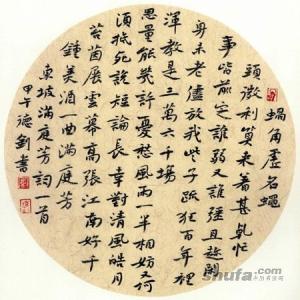 蝸角虛名蠅
頭微利算來著甚乾忙
事皆前定誰弱又誰強且趁閒
身未老儘放我些子疎狂百年裡
渾教是三萬六千場
思量能幾許憂愁風雨一半相妨又何
須抵死說短論長幸對清風皓月
苔茵展雲幕高張江南好千
鍾美酒一曲滿庭芳
東坡滿庭芳詞一首
甲午德釗書
shufa.com